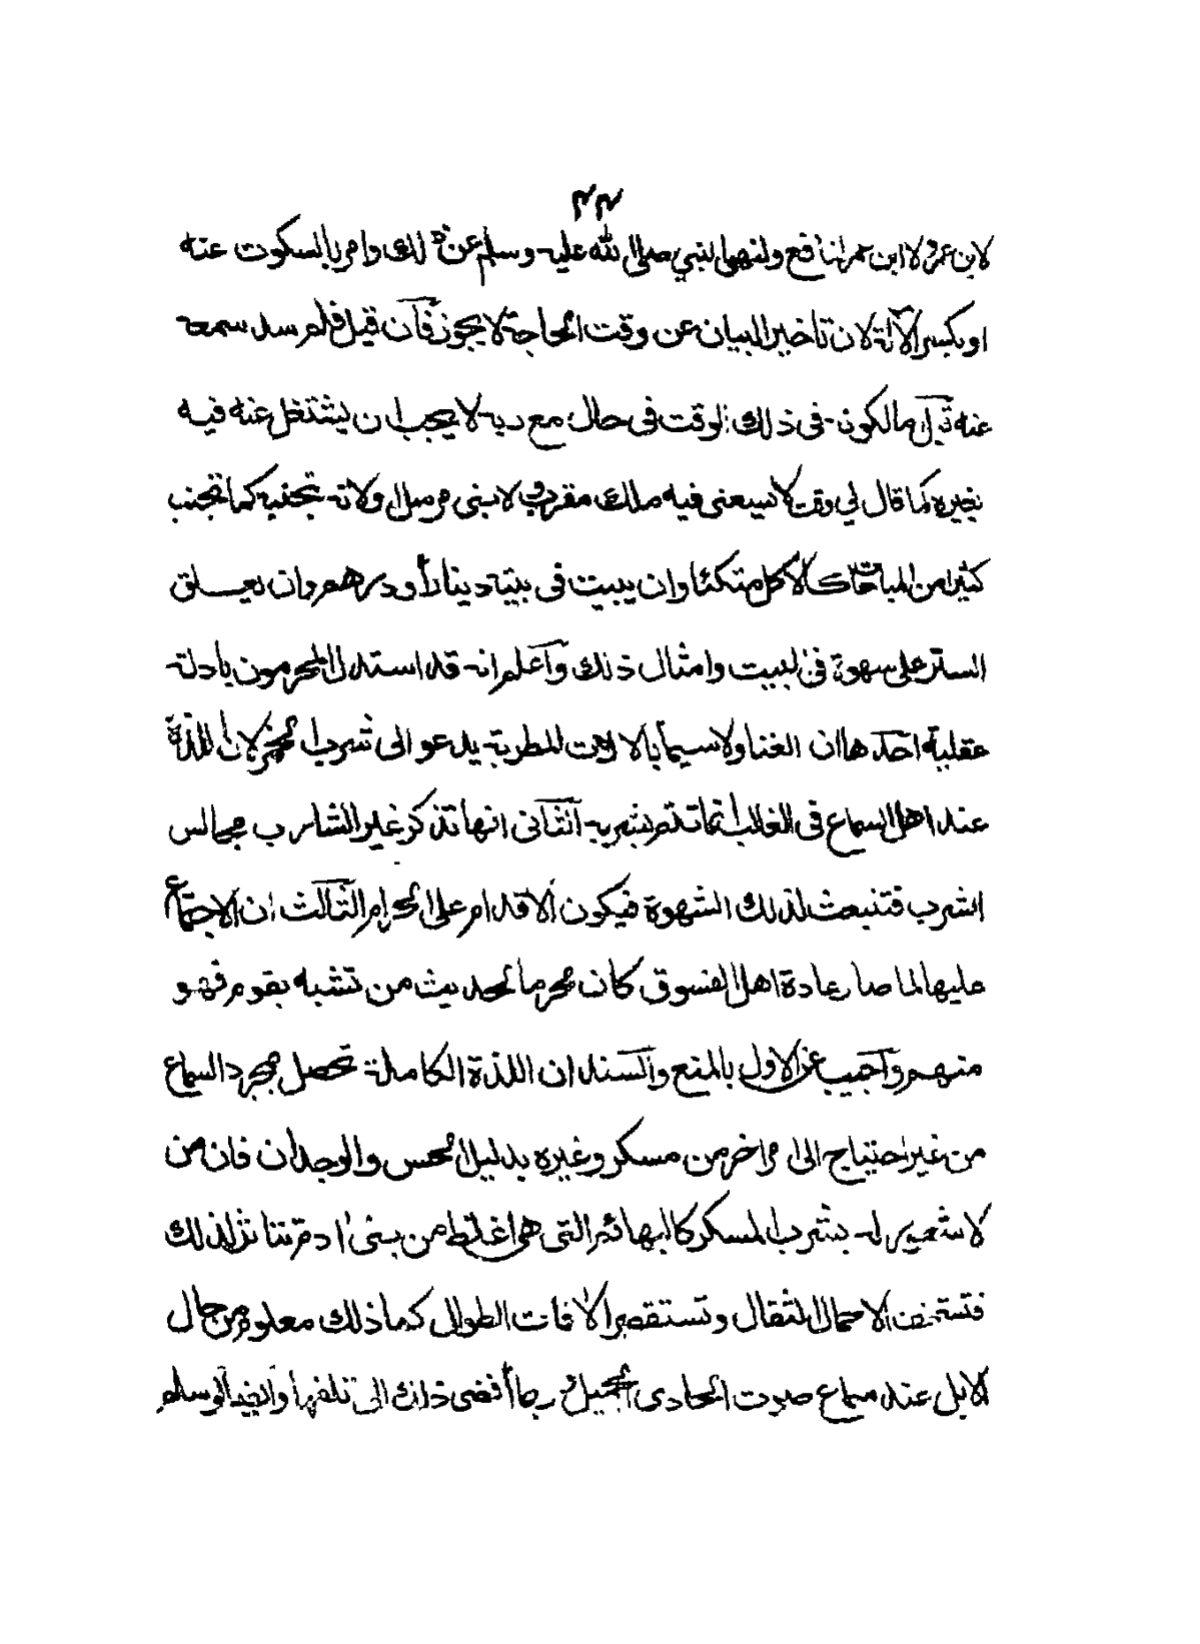 ٢٢
لابن عمر ولا ابن عمر لنافع ولنهى النبي صلى الله عليه وسلم عن ذلك وامر بالسكوت عنه
او بكسر الآلة لان تاخير البيان عن وقت الحاجة لا يجوز فآن قيل فلم سد سمعه
عنه قيل مالكونه فى ذلك الوقت فى حال مع ربه لا يحب ان يشتغل عنه فيه
بغيره كما قال لي وقت لا يسعنى فيه ملك مقرب ولا نبى مرسل ولانه تجنبه كما تجنب
كثيرا من المباحات كالاكل متكئا وان يبيت فى بيته دينارا أو درهم وان يعلق
الستر على سهوة فى البيت وامثال ذلك وآعلم انه قد استدل المحرمون بادلة
عقلية احدها ان الغنا ولا سيما بالالات المطربة يدعو الى شرب الخمر لان اللذة
عند اهل السماع فى الغالب انما تتم بشربه آلثانى انها تذكر غير الشارب مجالس
الشرب فتنبعث لذلك الشهوة فيكون الاقدام على الحرام الثآلث ان الاجتماع
عليها لما صار عادة اهل الفسوق كان محرما لحديث من تشبه بقوم فهو
منهم وآجيب عن الاول بالمنع وآلسند ان اللذة الكاملة تحصل بمجرد السماع
من غير احتياج الى امر اخر من مسكر وغيره بدليل الحس والوجدان فان من
لا شعور له بشرب المسكر كالبهائم التى هى اغلظ من بنى ادم تتاثر لذلك
فتستخف الاحمال الثقال وتستقصر الآفات الطوال كما ذلك معلوم من حال
الابل عند سماع صوت الحادى الجميل وربما أفضى ذلك الى تلفها وآيضا لو سلم